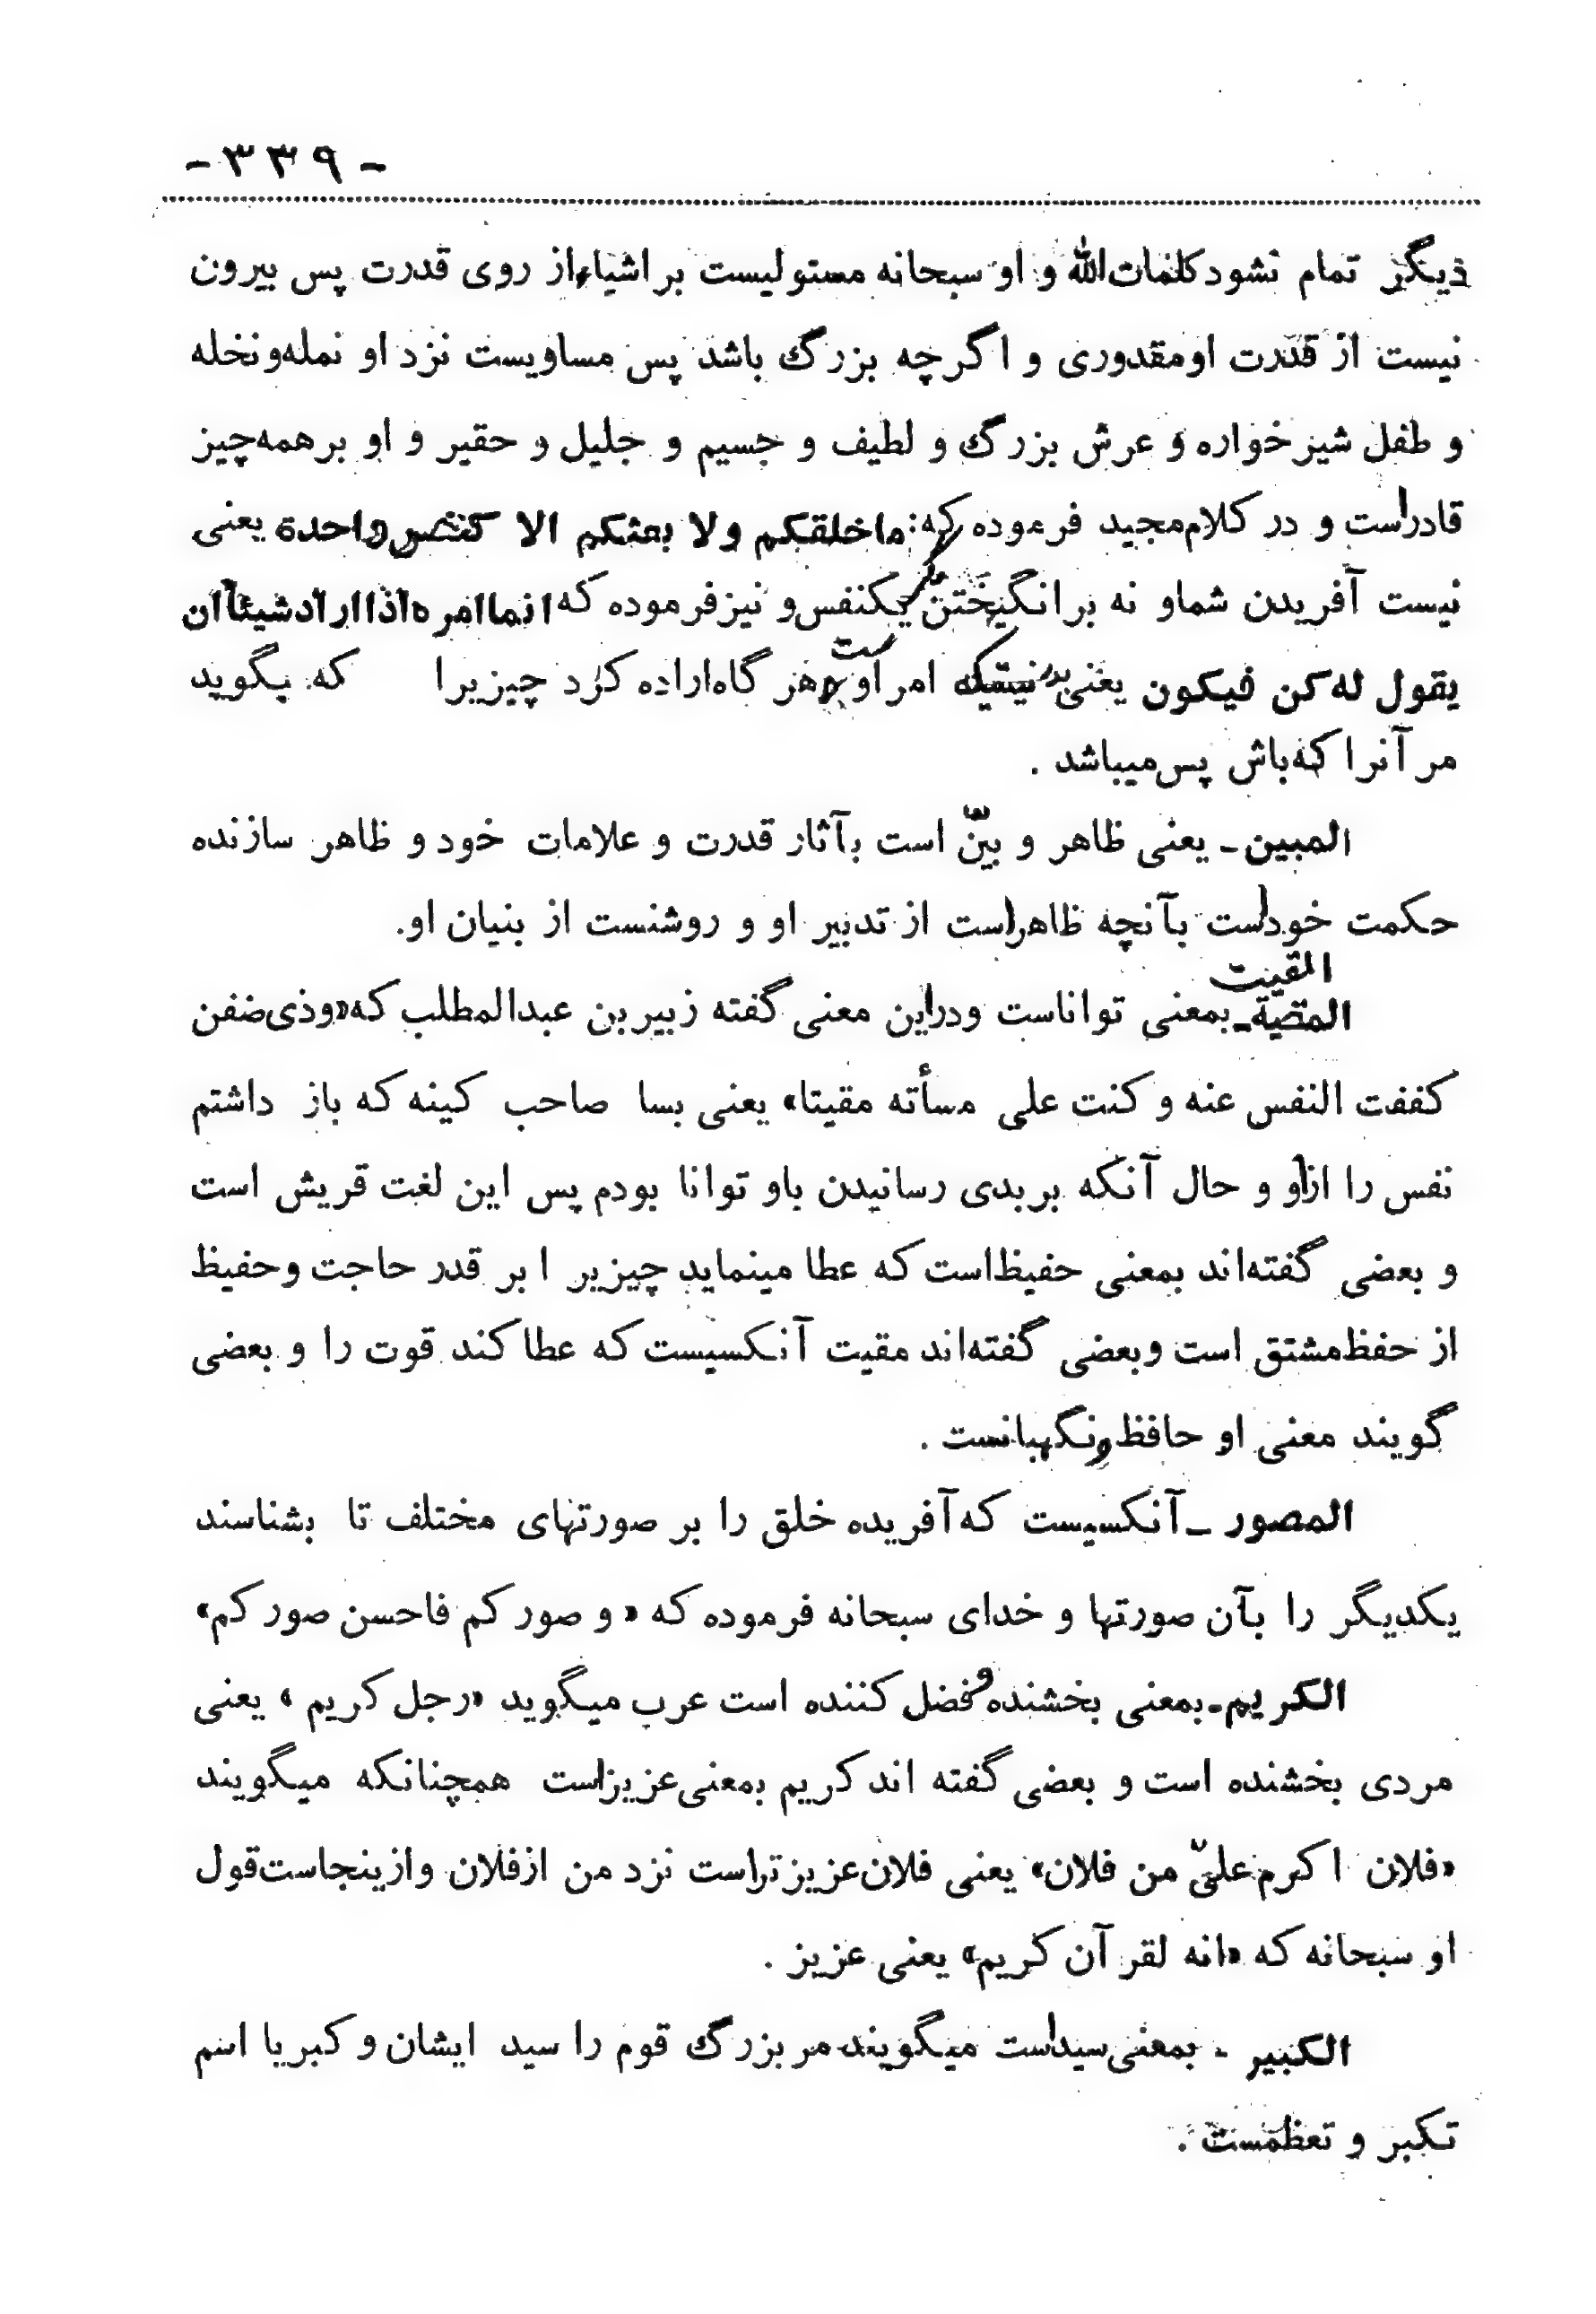 -۳۳۹-
دیگر تمام نشود کلمات‌الله و او سبحانه مستولیست بر اشیاء از روی قدرت پس بیرون
نیست از قدرت او مقدوری و اگرچه بزرگ باشد پس مساویست نزد او نمله و نخله
و طفل شیر خواره و عرش بزرگ و لطیف و جسیم و جلیل و حقیر و او بر همه چیز
قادر است و در کلام مجید فرموده که: ما خلقکم ولا بعثکم الا کنفس واحدة یعنی
نیست آفریدن شما و نه برانگیختن مگر یکنفس و نیز فرموده که انما امره اذا اراد شیئآ ان
یقول له کن فیکون یعنی بدرستیکه امر او است هر گاه اراده کرد چیزیرا که بگوید
مر آنرا که باش پس میباشد .
المبین ـ یعنی ظاهر و بیّن است بآثار قدرت و علامات خود و ظاهر سازنده
حکمت خود است بآنچه ظاهر است از تدبیر او و روشنست از بنیان او.
المقیت
المقیة ـ بمعنی تواناست و در این معنی گفته زبیر بن عبدالمطلب که «وذی ضفن
کففت النفس عنه و کنت علی مسأته مقیتا» یعنی بسا صاحب کینه که باز داشتم
نفس را از او و حال آنکه بر بدی رسانیدن باو توانا بودم پس این لغت قریش است
و بعضی گفته‌اند بمعنی حفیظ است که عطا مینماید چیزیرا بر قدر حاجت و حفیظ
از حفظ مشتق است و بعضی گفته‌اند مقیت آنکسیست که عطا کند قوت را و بعضی
گویند معنی او حافظ و نگهبانست .
المصور ـ آنکسیست که آفریده خلق را بر صورتهای مختلف تا بشناسند
یکدیگر را بآن صورتها و خدای سبحانه فرموده که « و صور کم فاحسن صور کم»
الکریم ـ بمعنی بخشنده و فضل کننده است عرب میگوید «رجل کریم » یعنی
مردی بخشنده است و بعضی گفته اند کریم بمعنی عزیز است همچنانکه میگویند
«فلان اکرم علیّ من فلان» یعنی فلان عزیز تر است نزد من از فلان و ازینجاست قول
او سبحانه که «انه لقر آن کریم» یعنی عزیز .
الکبیر - بمعنی سید است میگویند مر بزرگ قوم را سید ایشان و کبریا اسم
تکبر و تعظمست .